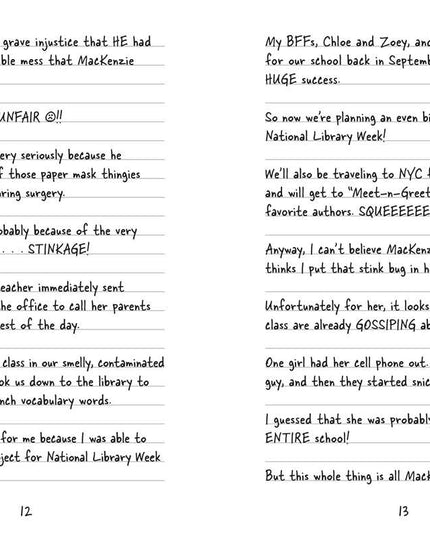 grave injustice that HE had
ble mess that MacKenzie
UNFAIR ☹!!
ery seriously because he
f those paper mask thingies
ring surgery.
obably because of the very
. . . STINKAGE!
eacher immediately sent
he office to call her parents
est of the day.
class in our smelly, contaminated
ok us down to the library to
nch vocabulary words.
for me because I was able to
ject for National Library Week
12
My BFFs, Chloe and Zoey, and
for our school back in Septemb
HUGE success.
So now we're planning an even bi
National Library Week!
We'll also be traveling to NYC f
and will get to "Meet-n-Greet
favorite authors. SQUEEEEEE
Anyway, I can't believe MacKenz
thinks I put that stink bug in h
Unfortunately for her, it looks
class are already GOSSIPING ab
One girl had her cell phone out.
guy, and then they started snic
I guessed that she was probably
ENTIRE school!
But this whole thing is all Mack
13